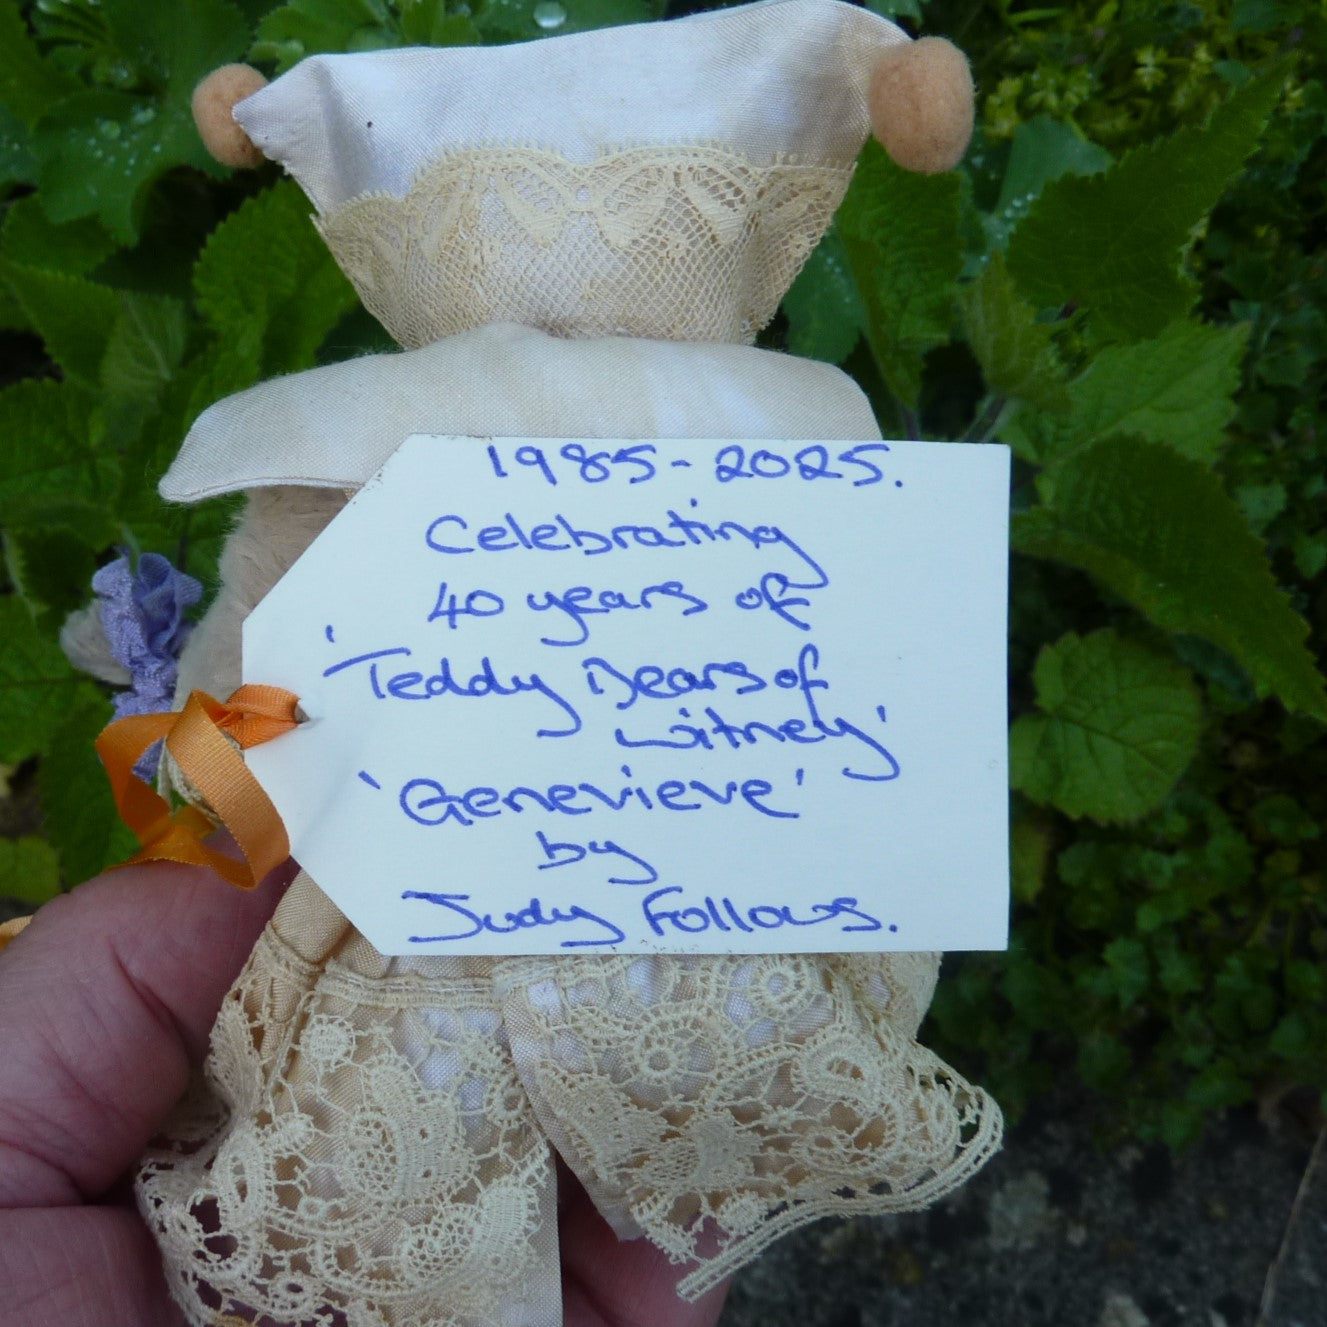 1985-2025.
Celebrating
40 years of
'Teddy Bears of
Witney'
'Genevieve'
by
Judy Follows.